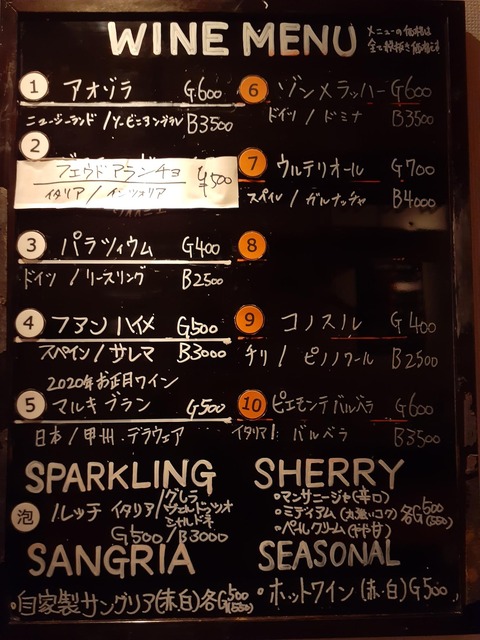 WINE MENU
メニューの価格は
全て税抜き価格です
① アオゾラ G600
ニュージーランド / ソービニヨンブラン B3500
②
フェウドアランチョ ¥500
イタリア / インツォリア
③ パラツィウム G400
ドイツ / リースリング B2500
④ フアンハイメ G500
スペイン / サレマ B3000
2020年お正月ワイン
⑤ マルキブラン G500
日本 / 甲州・デラウェア
⑥ ゾンメラッハー G600
ドイツ / ドミナ B3500
⑦ ウルテリオール G700
スペイン / ガルナッチャ B4000
⑧
⑨ コノスル G400
チリ / ピノノワール B2500
⑩ ピエモンテバルベラ G600
イタリア / バルベラ B3500
SPARKLING
泡 ルッチ イタリア / グレラ
ヴェルドゥッツオ
シャルドネ
G500 / B3000
SANGRIA
・自家製サングリア(赤・白)各G500
(550)
SHERRY
・マンサニージャ(辛口)
・ミディアム(丸濃いコク) 各G500
(550)
・ペールクリーム(半甘)
SEASONAL
・ホットワイン(赤・白) G500